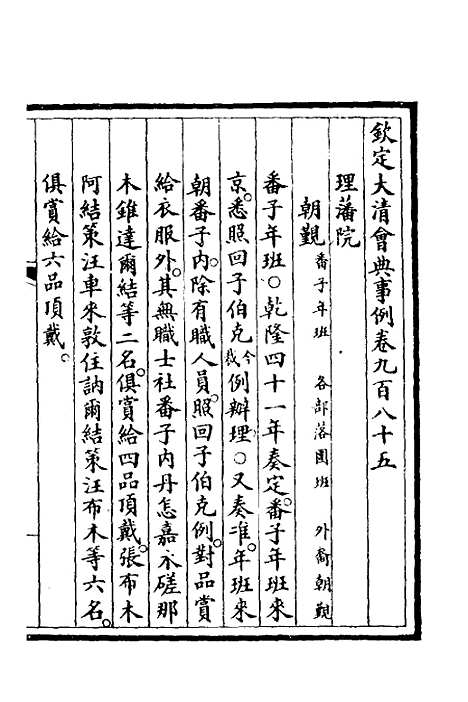 欽定大清會典事例卷九百八十五
理藩院
朝覲番子年班 各部落圍班 外裔朝覲
番子年班○乾隆四十一年奏定。番子年班來
京。悉照回子伯克今裁例辦理○又奏准。年班來
朝番子內。除有職人員。照回子伯克例。對品賞
給衣服外。其無職土社番子內丹怎嘉木磋那
木錐達爾結等二名。俱賞給四品頂戴。張布木
阿結策汪車來敦住訥爾結策汪布木等六名。
俱賞給六品頂戴。